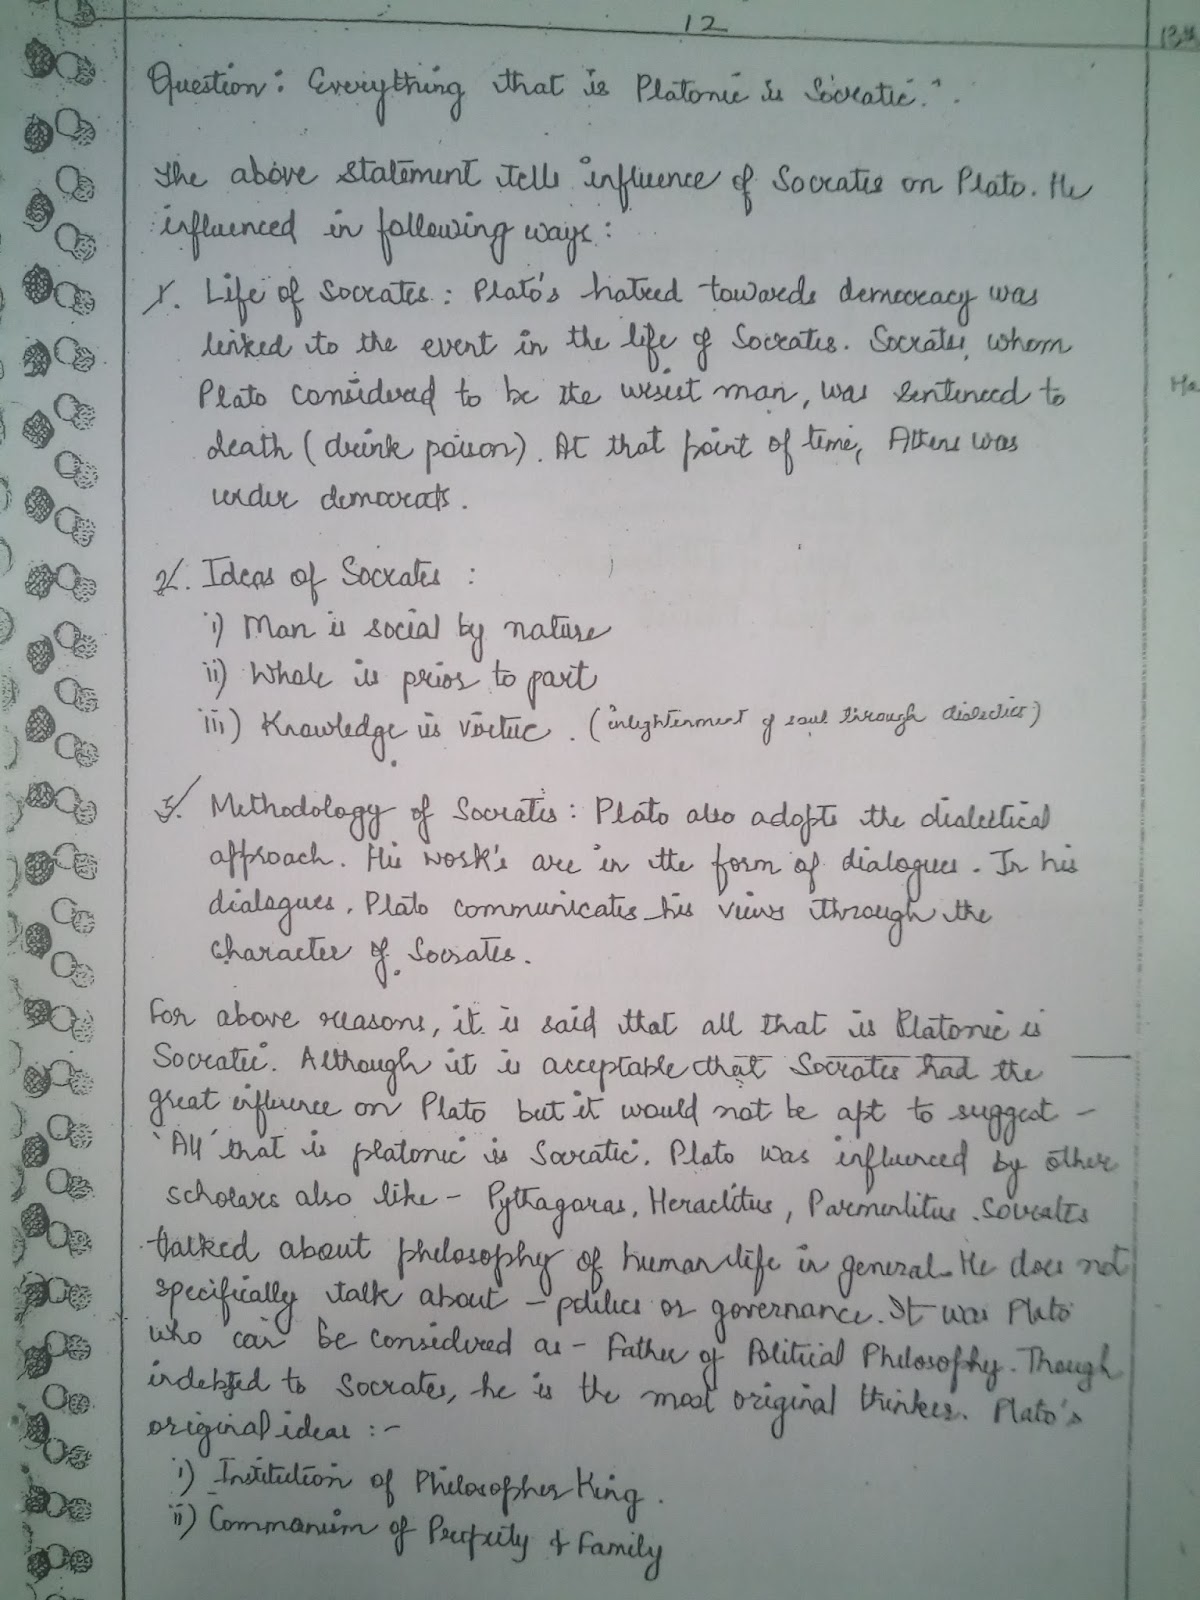 12
13th
Question: Everything that is Platonic is Socratic."
The above statement tells influence of Socrates on Plato. He
influenced in following ways:
1. Life of Socrates: Plato's hatred towards democracy was
linked to the event in the life of Socrates. Socrates, whom
Plato considered to be the wisest man, was sentenced to
death (drink poison). At that point of time, Athens was
under democrats.
2. Ideas of Socrates:
i) Man is social by nature
ii) Whole is prior to part
iii) Knowledge is virtue. (inlightenment of soul through dialectics)
3. Methodology of Socrates: Plato also adopts the dialectical
approach. His work's are in the form of dialogues. In his
dialogues, Plato communicates his views through the
character of Socrates.
For above reasons, it is said that all that is Platonic is
Socratic. Although it is acceptable that Socrates had the
great influence on Plato but it would not be apt to suggest -
'All' that is platonic is Socratic. Plato was influenced by other
scholars also like - Pythagoras, Heraclitus, Parmenlitus. Socrates
talked about philosophy of human life in general. He does not
specifically talk about - politics or governance. It was Plato
who can be considered as - Father of Political Philosophy. Though
indebted to Socrates, he is the most original thinker. Plato's
original ideas :-
i) Institution of Philosopher King.
ii) Communism of Property & Family